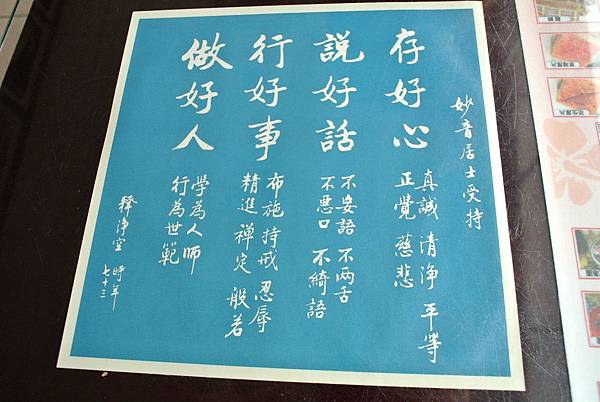 妙音居士受持
存好心
真誠 清淨 平等
正覺 慈悲
説好話
不妄語 不兩舌
不惡口 不綺語
行好事
布施 持戒 忍辱
精進 禪定 般若
做好人
学為人師
行為世範
釋淨空 時年七十三